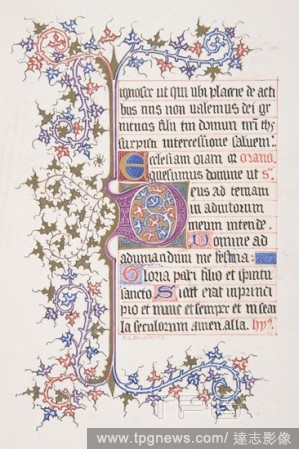 ignosce ut qui tibi placere de acti
bus nris non valemus dei ge
nitricis filii tui domini nri
intercessione salvem
Ecclesiam qram or Orano.
quesumus domine ut s.
Deus ad teriam
in aditorium
meum intende.
Domine ad
adiuuandum me festina:
Gloria patri filio et spiritui
sancto Sicut erat in princi
pio et nunc et semper et in secu
la seculorum amen. alla. hy9.
www.tpgnews.com / 達志影像